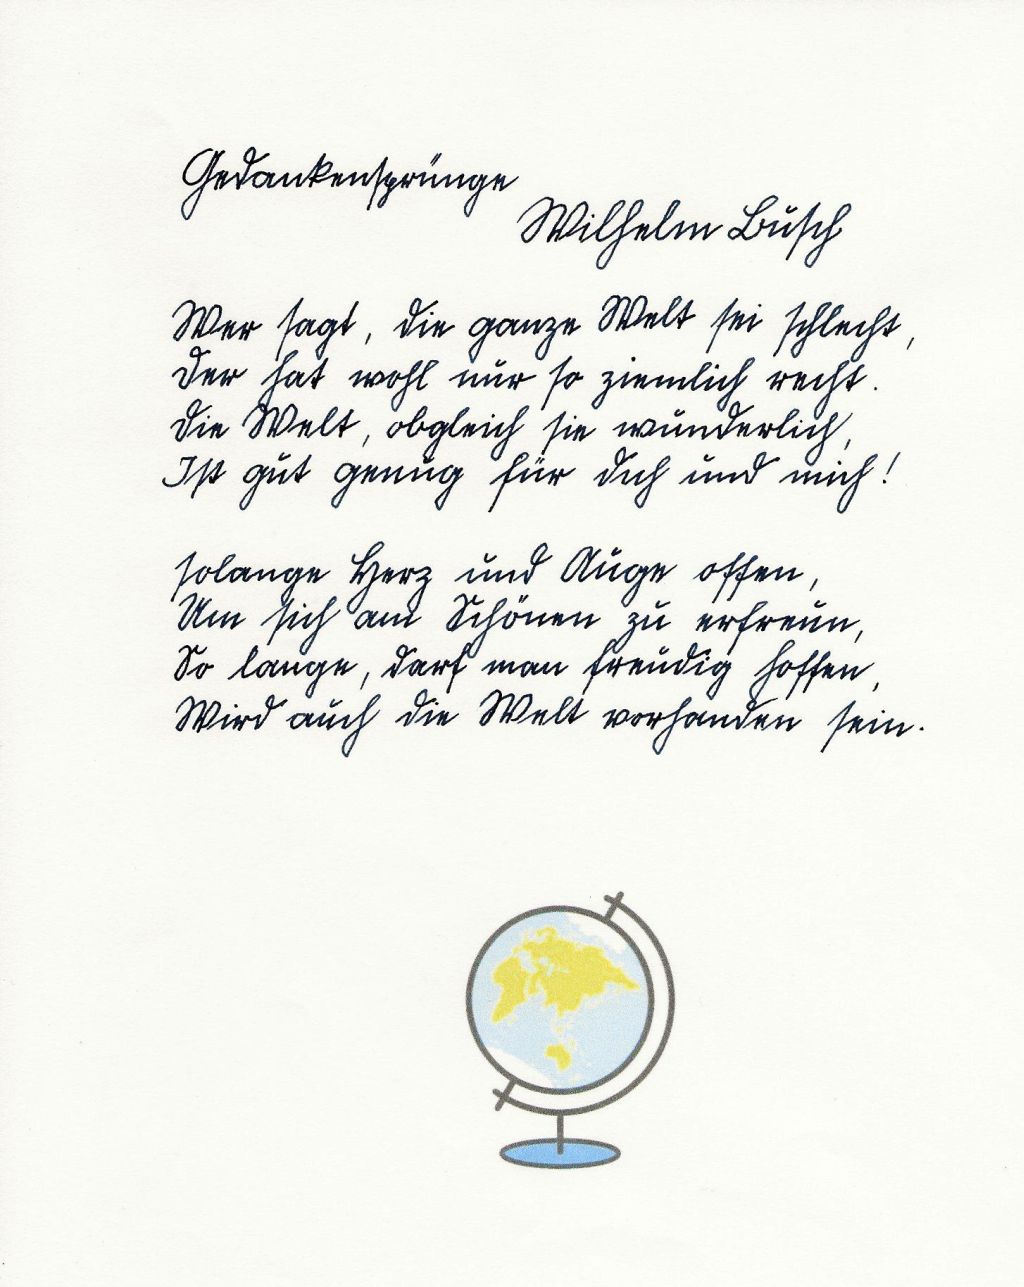 Gedankensprünge
Wilhelm Busch
Wer sagt, die ganze Welt sei schlecht,
der hat wohl nur so ziemlich recht.
Die Welt, obgleich sie wunderlich,
Ist gut genug für dich und mich!
solange Herz und Auge offen,
Um sich am Schönen zu erfreun,
So lange, darf man freudig hoffen,
Wird auch die Welt vorhanden sein.